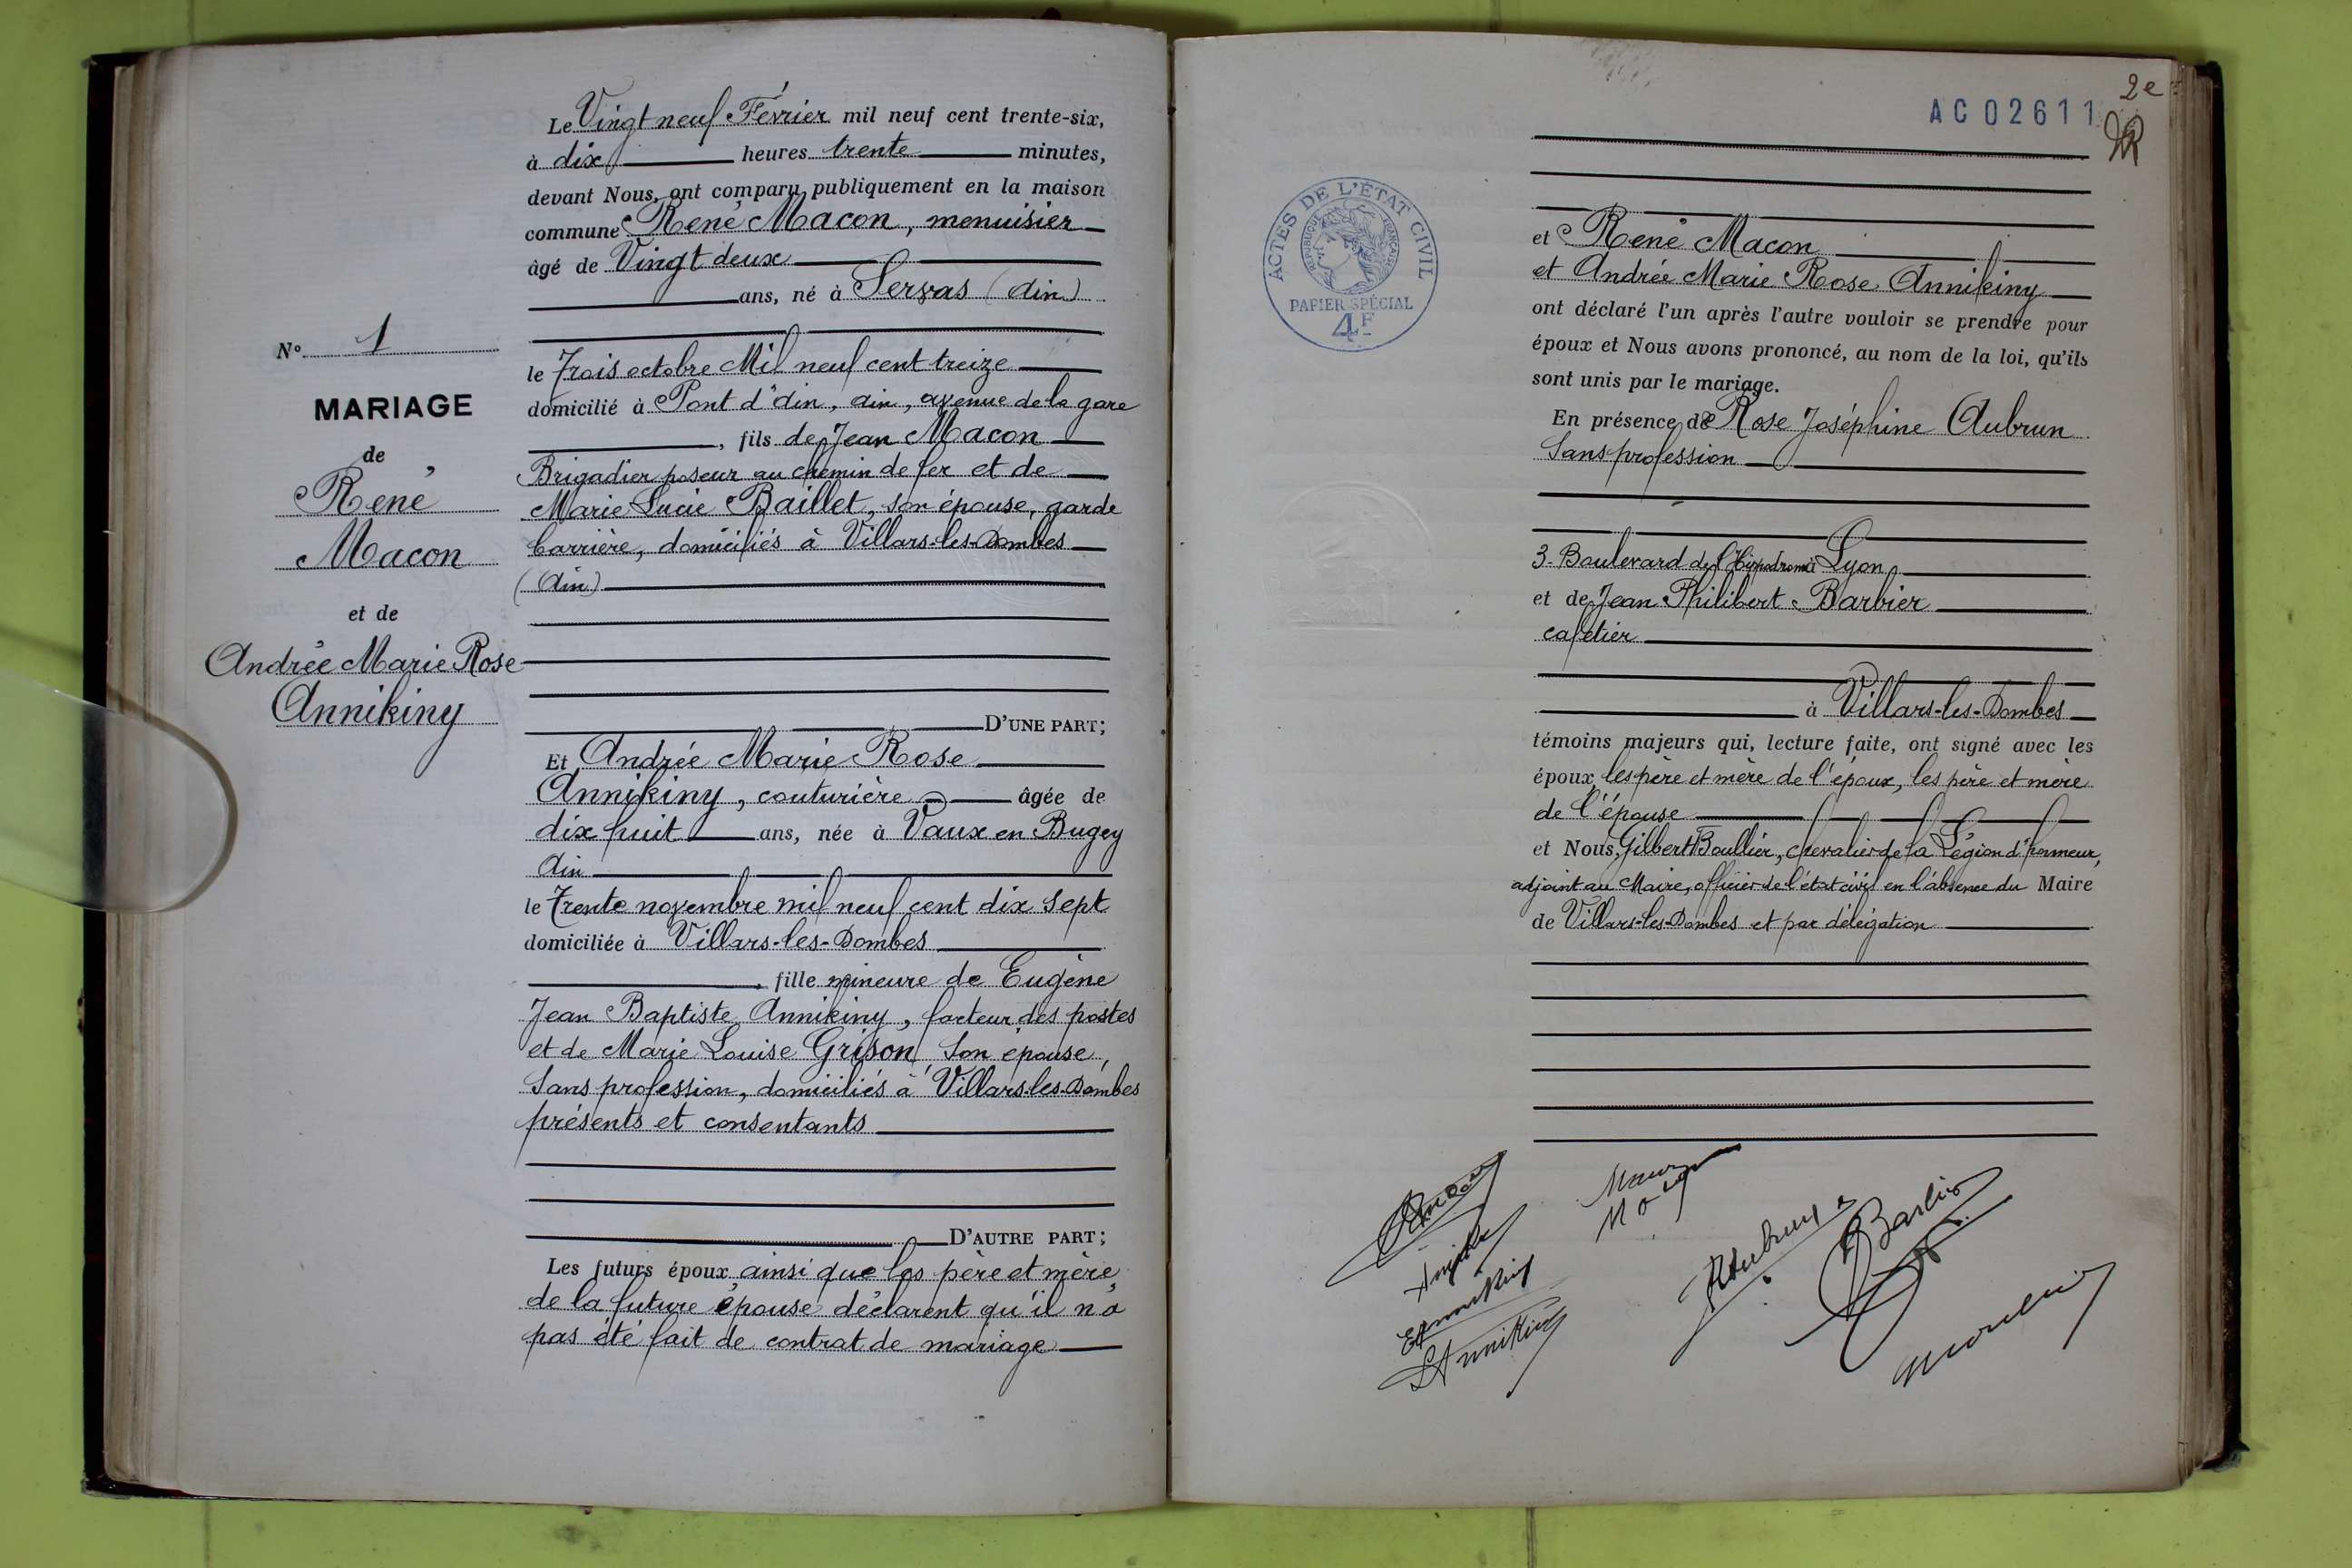 N° 1
MARIAGE
de
René
Macon
et de
Andrée Marie Rose
Annikiny
Le Vingt neuf Février mil neuf cent trente-six,
à dix heures trente minutes,
devant Nous, ont comparu publiquement en la maison
commune René Macon, menuisier
âgé de Vingt deux
ans, né à Servas (Ain)
le Trois octobre Mil neuf cent treize
domicilié à Pont d'Ain, Ain, avenue de la gare
, fils de Jean Macon
Brigadier poseur au chemin de fer et de
Marie Lucie Baillet, son épouse, garde
barrière, domiciliés à Villars-les-Dombes
(Ain)
D'UNE PART;
Et Andrée Marie Rose
Annikiny, couturière âgée de
dix huit ans, née à Vaux en Bugey
Ain
le Trente novembre mil neuf cent dix sept
domiciliée à Villars-les-Dombes
, fille mineure de Eugène
Jean Baptiste Annikiny, facteur des postes
et de Marie Louise Grison, Son épouse,
Sans profession, domiciliés à Villars-les-Dombes
présents et consentants
D'AUTRE PART;
Les futurs époux, ainsi que les père et mère
de la future épouse déclarent qu'il n'a
pas été fait de contrat de mariage
2e
AC02611
ACTES DE L'ÉTAT CIVIL
RÉPUBLIQUE FRANÇAISE
PAPIER SPÉCIAL
4F
et René Macon
et Andrée Marie Rose Annikiny
ont déclaré l'un après l'autre vouloir se prendre pour
époux et Nous avons prononcé, au nom de la loi, qu'ils
sont unis par le mariage.
En présence de Rose Joséphine Aubrun
Sans profession
3. Boulevard de l'Hippodrome à Lyon
et de Jean Philibert Barbier
cafetier
à Villars-les-Dombes
témoins majeurs qui, lecture faite, ont signé avec les
époux, les père et mère de l'époux, les père et mère
de l'épouse
et Nous, Gilbert Boullier, chevalier de la Légion d'honneur,
adjoint au Maire, officier de l'état civil en l'absence du Maire
de Villars-les-Dombes et par délégation
Annikiny
LAnnikiny
Barbier